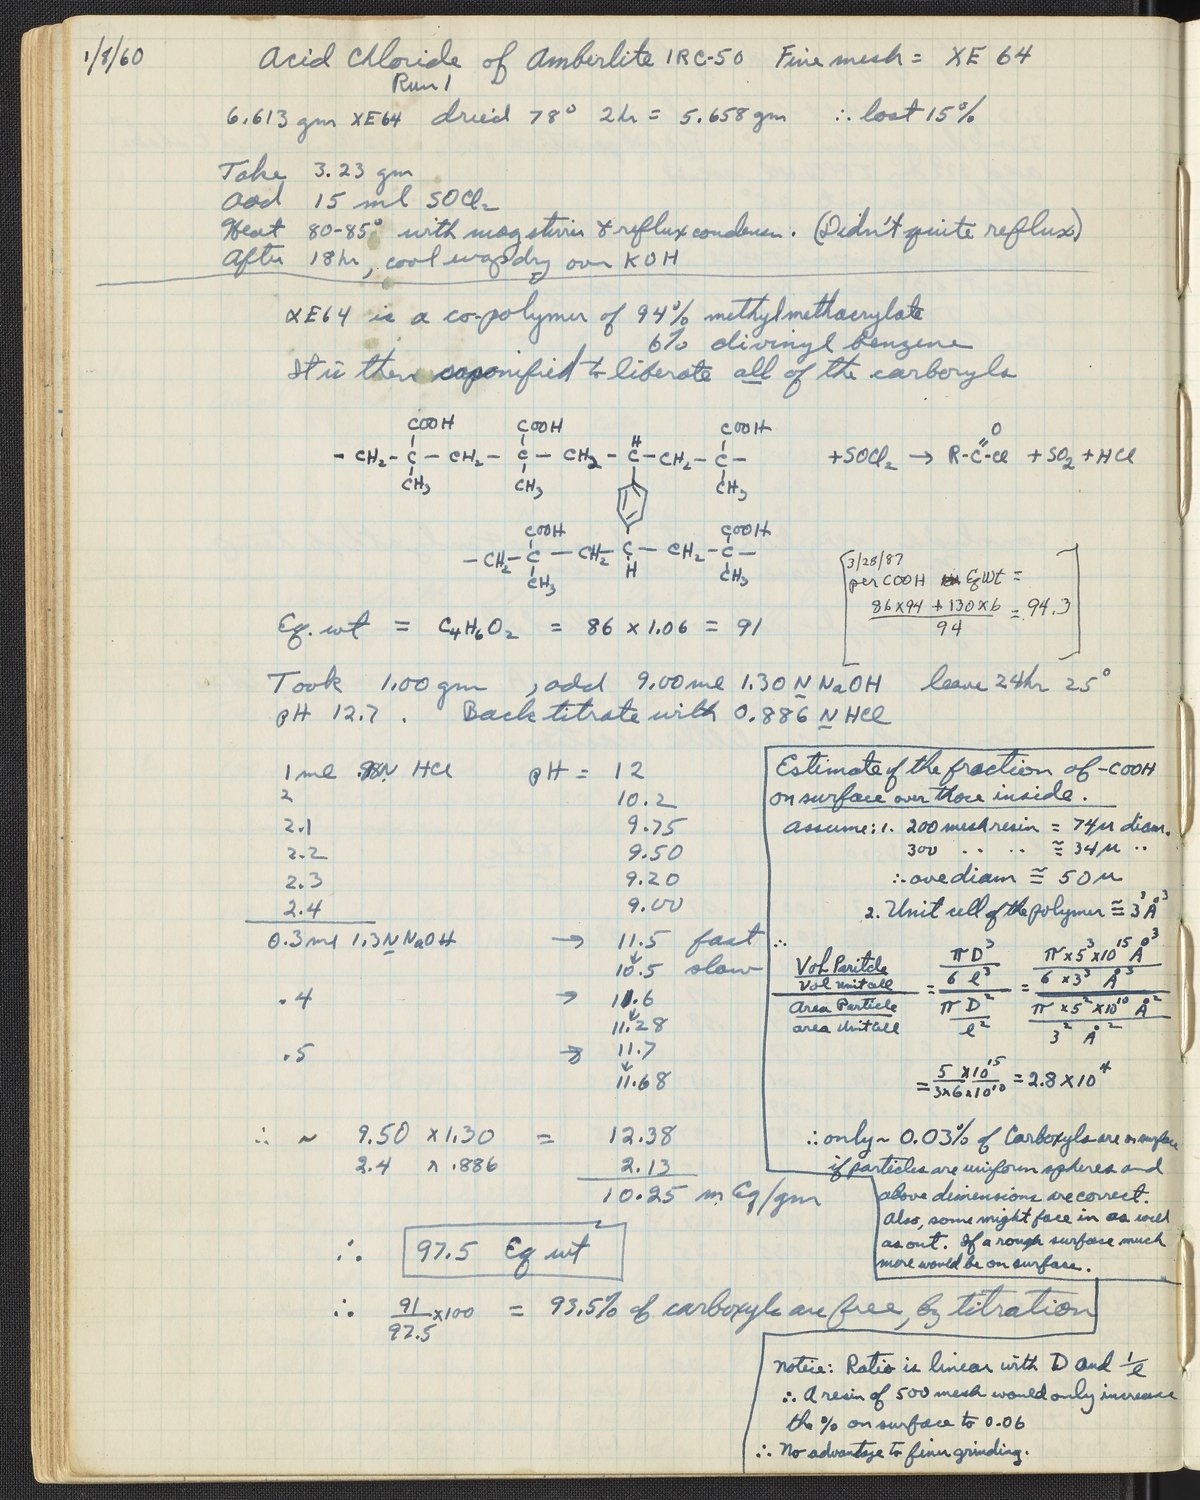 1/8/60
Acid Chloride of Amberlite IRC-50 Fine mesh = XE 64
Run 1
6.613 gm XE64 dried 78° 2 hr = 5.658 gm ∴ lost 15%
Take 3.23 gm
Add 15 ml SOCl2
Heat 80-85° with mag stirrer & reflux condenser. (Didn't quite reflux)
After 18 hr, cool evap dry over KOH
XE64 is a co-polymer of 94% methylmethacrylate
6% divinyl benzene
It is then saponified to liberate all of the carboxyls
COOH COOH COOH
H O
- CH2 - C - CH2 - C - CH2 - C - CH2 - C - + SOCl2 → R-C-Cl + SO2 + HCl
CH3 CH3 CH3
COOH COOH
- CH2 - C - CH2 - C - CH2 - C -
CH3 H CH3
3/28/87
per COOH Eq Wt =
86 x 94 + 130 x 6 = 94.3
94
Eq. wt = C4H6O2 = 86 x 1.06 = 91
Took 1.00 gm, add 9.00 ml 1.30 N NaOH leave 24 hr 25°
pH 12.7. Back titrate with 0.886 N HCl
1 ml .88N HCl pH = 12
2 10.2
2.1 9.75
2.2 9.50
2.3 9.20
2.4 9.00
0.3 ml 1.3 N NaOH → 11.5 fast
↓
10.5 slow
.4 → 11.6
↓
11.28
.5 → 11.7
↓
11.68
∴ ~ 9.50 x 1.30 = 12.38
2.4 x .886 2.13
10.25 mEq/gm
∴ 97.5 Eq wt
∴ 91 x100 = 93.5% of carboxyls are free, by titration
97.5
Estimate of the fraction of -COOH
on surface over those inside.
Assume: 1. 200 mesh resin = 74μ diam.
300 .. .. ≅ 34μ ..
∴ ave diam ≅ 50μ
2. Unit cell of the polymer ≅ 3³Å³
∴
Vol Paritcle πD³ π x 5³ x 10¹⁵ Å³
Vol unit cell = 6 l³ = 6 x 3³ Å³
Area Particle πD² π x 5² x 10¹⁰ Å²
area Unit cell l² 3² Å²
= 5 x 10¹⁵ = 2.8 x 10⁴
3x6x10¹⁰
∴ only ~ 0.03% of Carboxyls are on surface
if particles are uniform spheres and
above dimensions are correct.
Also, some might face in as well
as out. If a rough surface much
more would be on surface.
Notice: Ratio is linear with D and 1/l
∴ A resin of 500 mesh would only increase
the % on surface to 0.06
∴ No advantage to finer grinding.